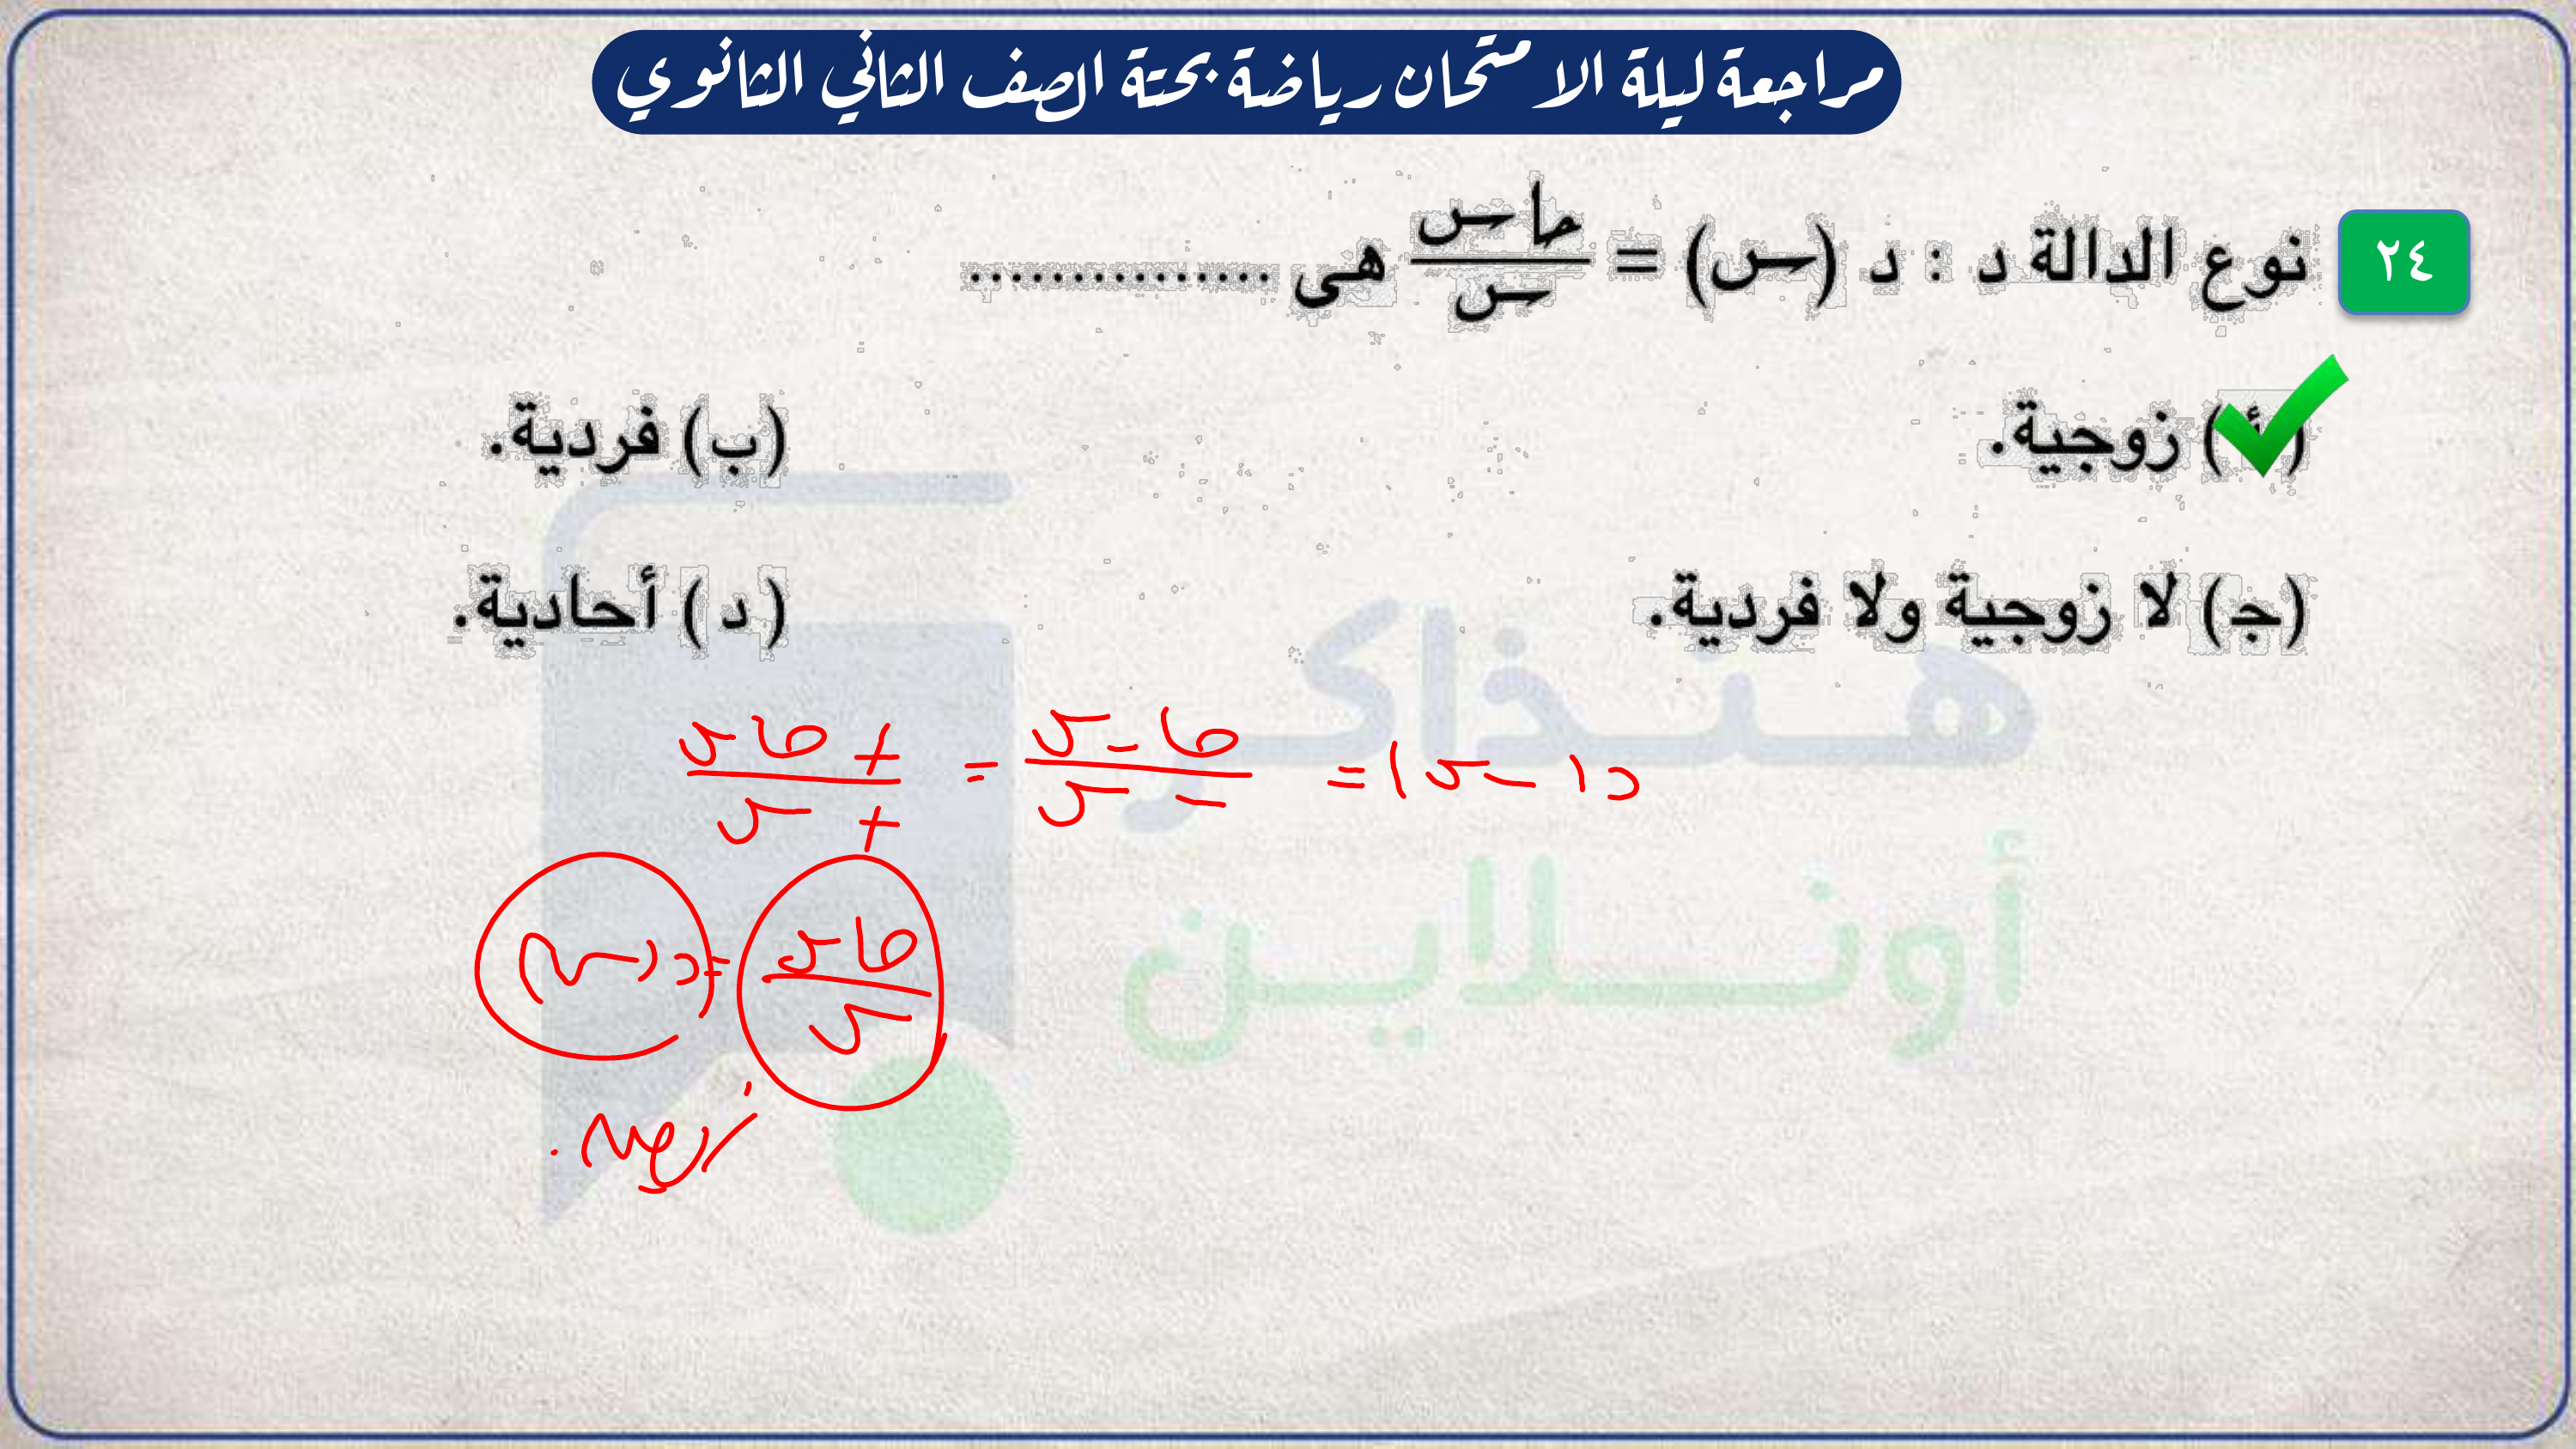 مراجعة ليلة الامتحان رياضة بحتة الصف الثاني الثانوي
٢٤ نوع الدالة د : د (س) = حاس/س هى ...............
(أ) زوجية. (ب) فردية.
(ج) لا زوجية ولا فردية. (د) أحادية.
د(-س) = حا-س/-س = +حاس/+س
حاس/س = د(س)
زوجية.
هنذاكر
أونلاين